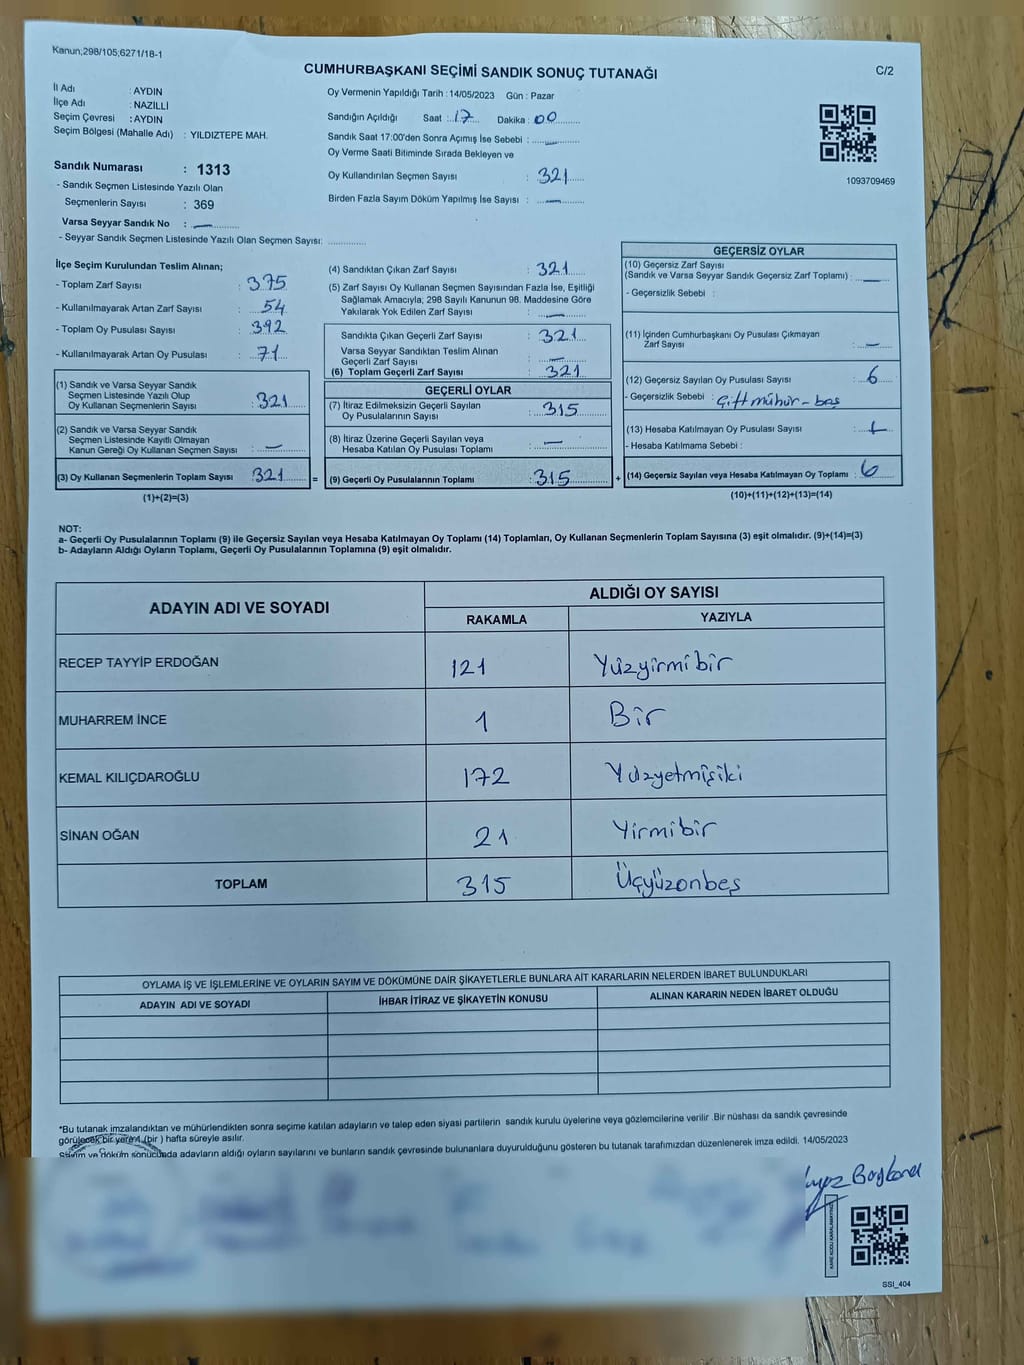 Kanun;298/105;6271/18-1
CUMHURBAŞKANI SEÇİMİ SANDIK SONUÇ TUTANAĞI
C/2
İl Adı : AYDIN
İlçe Adı : NAZİLLİ
Seçim Çevresi : AYDIN
Seçim Bölgesi (Mahalle Adı) : YILDIZTEPE MAH.
Sandık Numarası : 1313
- Sandık Seçmen Listesinde Yazılı Olan
Seçmenlerin Sayısı : 369
Varsa Seyyar Sandık No : —
- Seyyar Sandık Seçmen Listesinde Yazılı Olan Seçmen Sayısı: ..............
Oy Vermenin Yapıldığı Tarih : 14/05/2023 Gün : Pazar
Sandığın Açıldığı Saat : 17 Dakika : 00
Sandık Saat 17:00'den Sonra Açımış İse Sebebi : —
Oy Verme Saati Bitiminde Sırada Bekleyen ve
Oy Kullandırılan Seçmen Sayısı : 321
Birden Fazla Sayım Döküm Yapılmış İse Sayısı : —
1093709469
İlçe Seçim Kurulundan Teslim Alınan;
- Toplam Zarf Sayısı : 375
- Kullanılmayarak Artan Zarf Sayısı : 54
- Toplam Oy Pusulası Sayısı : 392
- Kullanılmayarak Artan Oy Pusulası : 71
(1) Sandık ve Varsa Seyyar Sandık
Seçmen Listesinde Yazılı Olup
Oy Kullanan Seçmenlerin Sayısı : 321
(2) Sandık ve Varsa Seyyar Sandık
Seçmen Listesinde Kayıtlı Olmayan
Kanun Gereği Oy Kullanan Seçmen Sayısı : —
(3) Oy Kullanan Seçmenlerin Toplam Sayısı : 321 =
(1)+(2)=(3)
(4) Sandıktan Çıkan Zarf Sayısı : 321
(5) Zarf Sayısı Oy Kullanan Seçmen Sayısından Fazla İse, Eşitliği
Sağlamak Amacıyla; 298 Sayılı Kanunun 98. Maddesine Göre
Yakılarak Yok Edilen Zarf Sayısı : —
Sandıkta Çıkan Geçerli Zarf Sayısı : 321
Varsa Seyyar Sandıktan Teslim Alınan
Geçerli Zarf Sayısı : —
(6) Toplam Geçerli Zarf Sayısı : 321
GEÇERLİ OYLAR
(7) İtiraz Edilmeksizin Geçerli Sayılan
Oy Pusulalarının Sayısı : 315
(8) İtiraz Üzerine Geçerli Sayılan veya
Hesaba Katılan Oy Pusulası Toplamı : —
(9) Geçerli Oy Pusulalarının Toplamı : 315 +
GEÇERSİZ OYLAR
(10) Geçersiz Zarf Sayısı
(Sandık ve Varsa Seyyar Sandık Geçersiz Zarf Toplamı) : —
- Geçersizlik Sebebi :
(11) İçinden Cumhurbaşkanı Oy Pusulası Çıkmayan
Zarf Sayısı : —
(12) Geçersiz Sayılan Oy Pusulası Sayısı : 6
- Geçersizlik Sebebi : Çift mühür - boş
(13) Hesaba Katılmayan Oy Pusulası Sayısı :
- Hesaba Katılmama Sebebi :
(14) Geçersiz Sayılan veya Hesaba Katılmayan Oy Toplamı : 6
(10)+(11)+(12)+(13)=(14)
NOT:
a- Geçerli Oy Pusulalarının Toplamı (9) ile Geçersiz Sayılan veya Hesaba Katılmayan Oy Toplamı (14) Toplamları, Oy Kullanan Seçmenlerin Toplam Sayısına (3) eşit olmalıdır. (9)+(14)=(3)
b- Adayların Aldığı Oyların Toplamı, Geçerli Oy Pusulalarının Toplamına (9) eşit olmalıdır.
ADAYIN ADI VE SOYADI
ALDIĞI OY SAYISI
RAKAMLA YAZIYLA
RECEP TAYYİP ERDOĞAN 121 Yüzyirmibir
MUHARREM İNCE 1 Bir
KEMAL KILIÇDAROĞLU 172 Yüzyetmişiki
SİNAN OĞAN 21 Yirmibir
TOPLAM 315 Üçyüzonbeş
OYLAMA İŞ VE İŞLEMLERİNE VE OYLARIN SAYIM VE DÖKÜMÜNE DAİR ŞİKAYETLERLE BUNLARA AİT KARARLARIN NELERDEN İBARET BULUNDUKLARI
ADAYIN ADI VE SOYADI İHBAR İTİRAZ VE ŞİKAYETİN KONUSU ALINAN KARARIN NEDEN İBARET OLDUĞU
*Bu tutanak imzalandıktan ve mühürlendikten sonra seçime katılan adayların ve talep eden siyasi partilerin sandık kurulu üyelerine veya gözlemcilerine verilir .Bir nüshası da sandık çevresinde
görülecek bir yere 1 (bir ) hafta süreyle asılır.
Sayım ve döküm sonucunda adayların aldığı oyların sayılarını ve bunların sandık çevresinde bulunanlara duyurulduğunu gösteren bu tutanak tarafımızdan düzenlenerek imza edildi. 14/05/2023
KARE KODU KARALAMAYINIZ
SSI_404